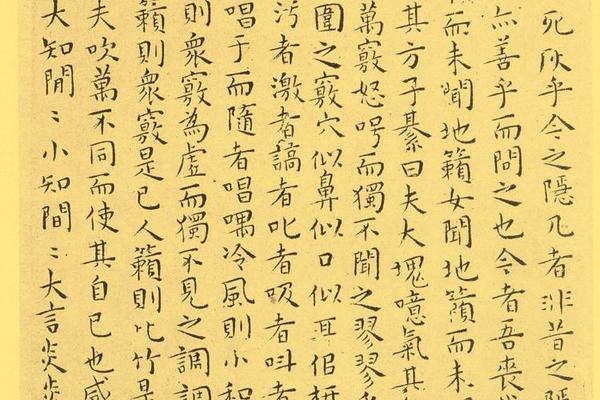 死灰乎今之隱几者非昔之隱
亦善乎而問之也今者吾喪
而未聞地籟女聞地籟而未
其方子綦曰夫大塊噫氣其
萬竅怒呺而獨不聞之翏翏
圍之竅穴似鼻似口似耳佀枅
污者激者謞者叱者吸者呌者
唱于而隨者唱喁冷風則小和
則衆竅為虛而獨不見之調調
籟則衆竅是已人籟則比竹是
夫吹萬不同而使其自已也咸
大知閒〻小知間〻大言炎炎